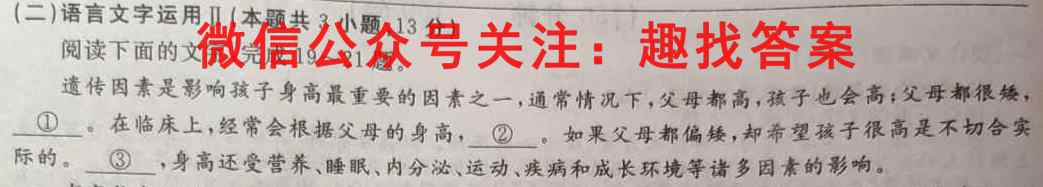 (二)语言文字运用Ⅱ(本题共3小题,13分)
微信公众号关注：趣找答案
阅读下面的文 完成19~21题。
遗传因素是影响孩子身高最重要的因素之一,通常情况下,父母都高,孩子也会高;父母都很矮,
①。在临床上,经常会根据父母的身高,②。如果父母都偏矮,却希望孩子很高是不切合实
际的。③,身高还受营养、睡眠、内分泌、运动、疾病和成长环境等诸多因素的影响。